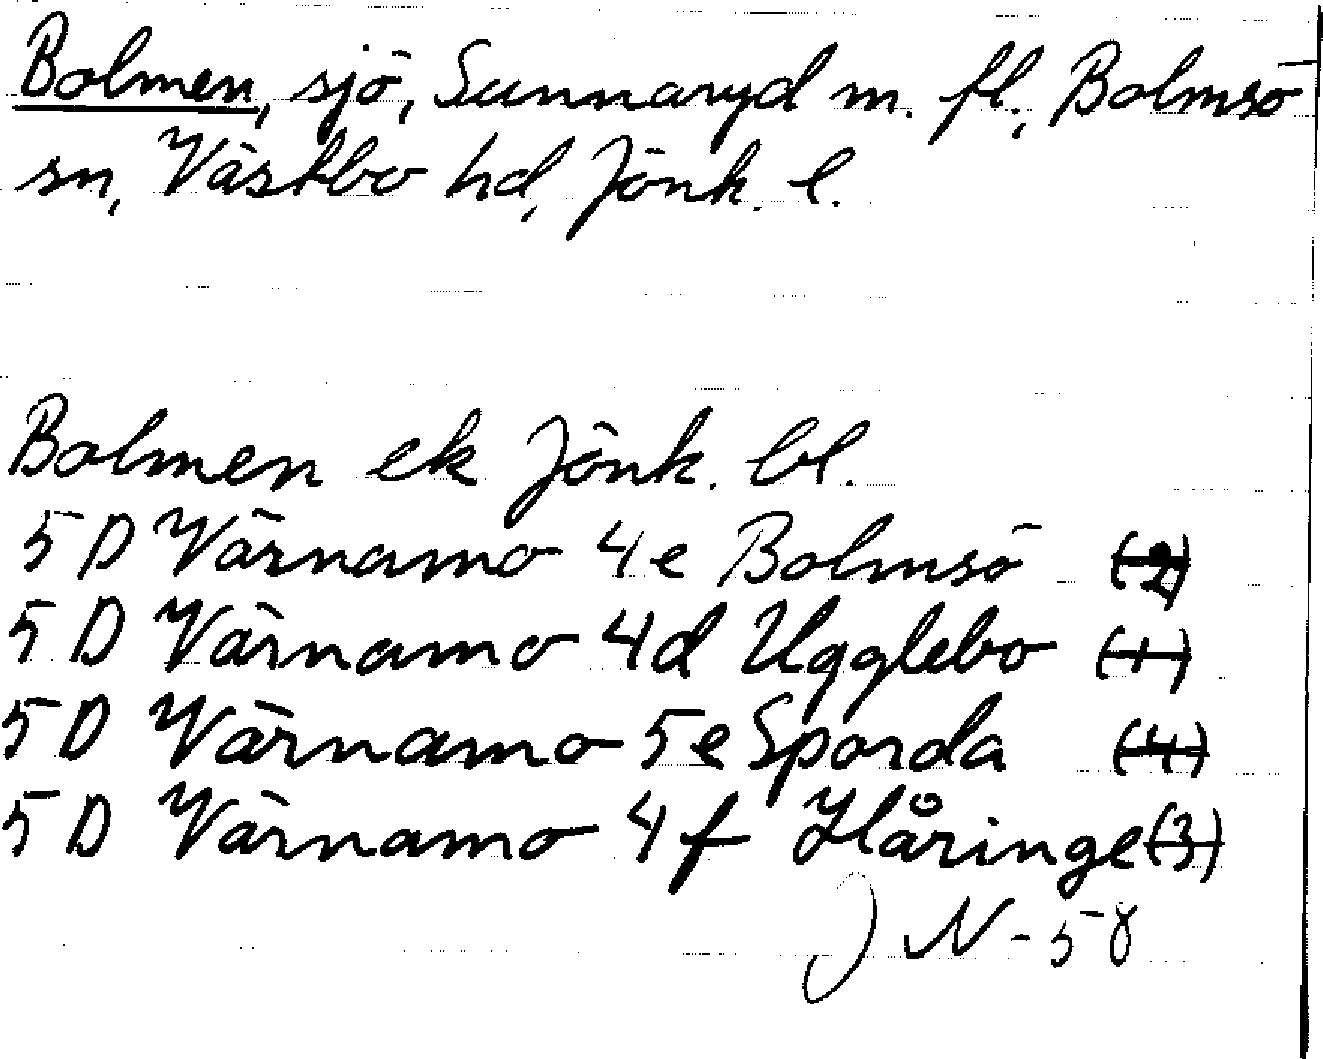 Bolmen, sjö, Sunnaryd m. fl., Bolmsö
sn, Västbo hd, Jönk. l.
Bolmen ek Jönk. bl.
5 D Värnamo 4e Bolmsö (2)
5 D Värnamo 4d Ugglebo (1)
5 D Värnamo 5e Sporda (4)
5 D Värnamo 4f Håringe (3)
JN-58